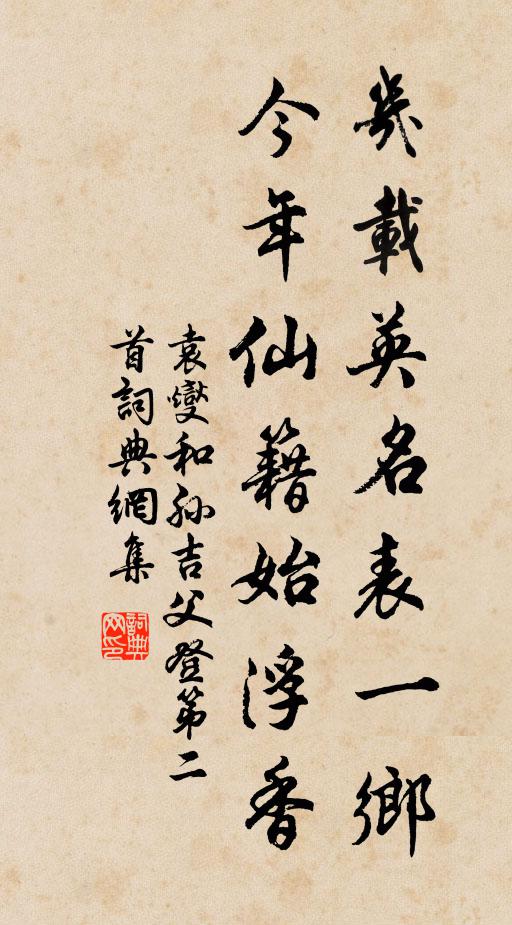 幾載英名表一鄉
今年仙籍始浮香
袁燮和孫吉父登第二
首詞典網集
詞典网印